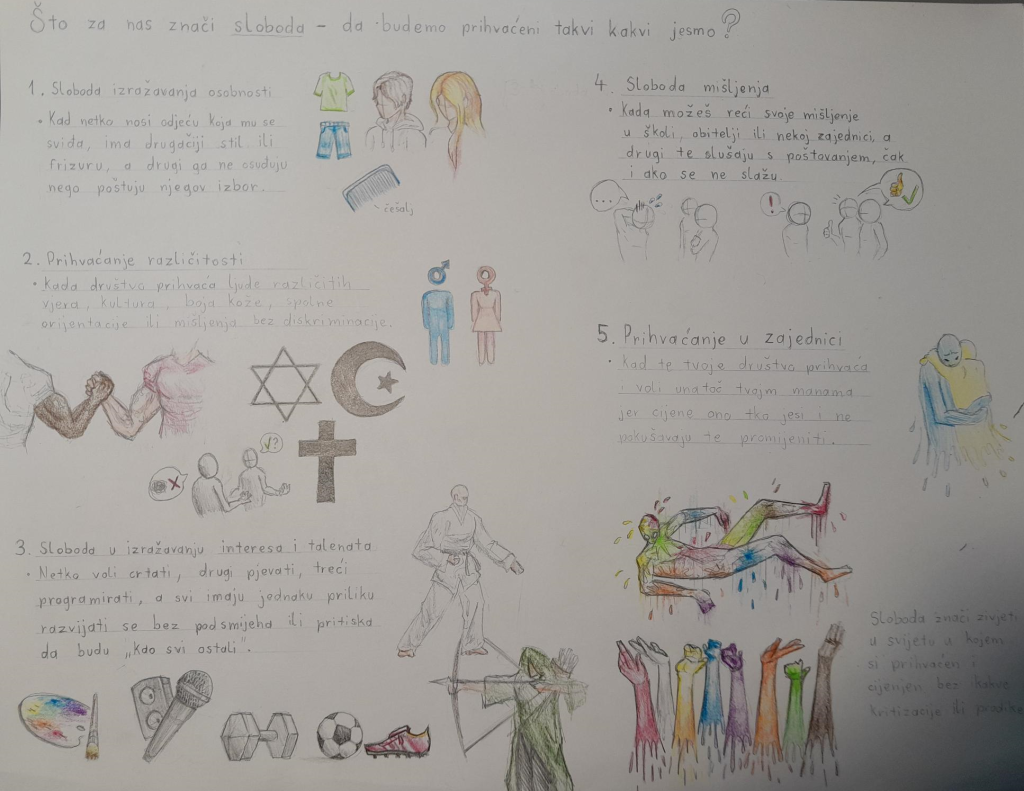 Što za nas znači sloboda - da budemo prihvaćeni takvi kakvi jesmo?
1. Sloboda izražavanja osobnosti
• Kad netko nosi odjeću koja mu se
sviđa, ima drugačiji stil ili
frizuru, a drugi ga ne osuđuju
nego poštuju njegov izbor.
češalj
2. Prihvaćanje različitosti
• Kada društvo prihvaća ljude različitih
vjera, kultura, boja kože, spolne
orijentacije ili mišljenja bez diskriminacije.
✓?
3. Sloboda u izražavanju interesa i talenata
• Netko voli crtati, drugi pjevati, treći
programirati, a svi imaju jednaku priliku
razvijati se bez podsmijeha ili pritiska
da budu „kao svi ostali".
4. Sloboda mišljenja
• Kada možeš reći svoje mišljenje
u školi, obitelji ili nekoj zajednici, a
drugi te slušaju s poštovanjem, čak
i ako se ne slažu.
...
!
5. Prihvaćanje u zajednici
• Kad te tvoje društvo prihvaća
i voli unatoč tvojim manama
jer cijene ono tko jesi i ne
pokušavaju te promijeniti.
Sloboda znači živjeti
u svijetu u kojem
si prihvaćen i
cijenjen bez kakve
kritizacije ili